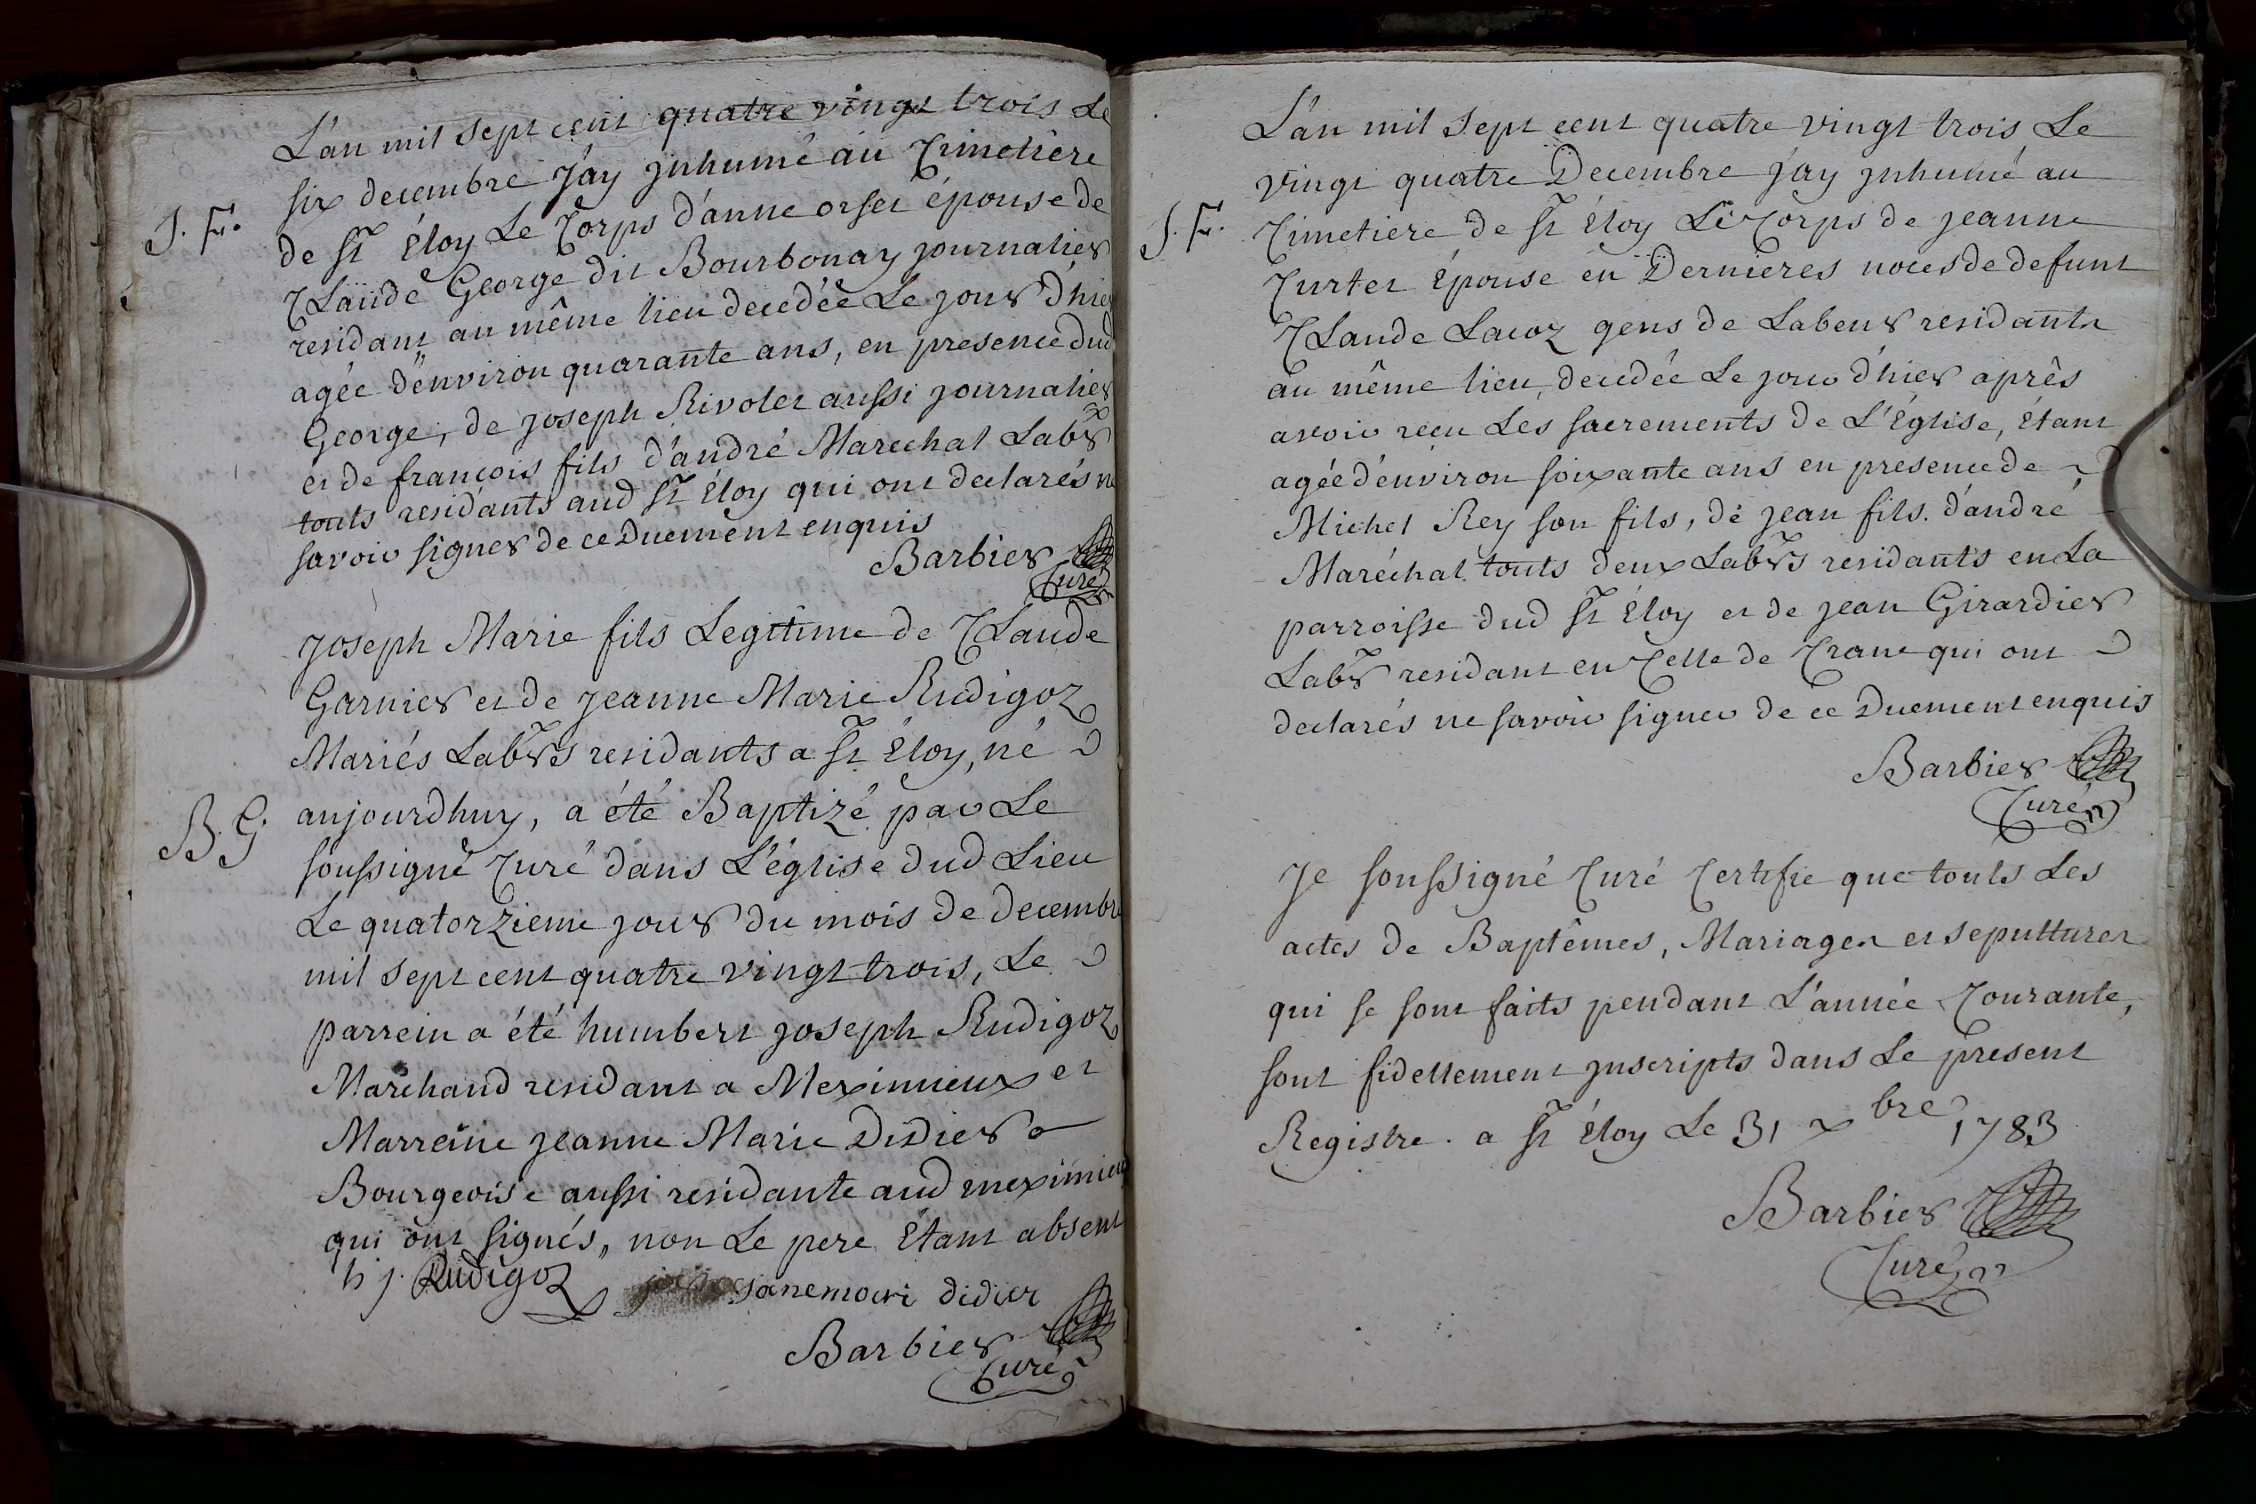 L'an mil sept cent quatre vingt trois Le
six decembre J'ay jnhumé au Cimetière
de St Éloy Le Corps d'anne orset épouse de
S. F.
Claude George dit Bourbonay journalier
residant au même lieu decedée Le jour d'hier
agée d'environ quarante ans, en presence dud
George, de joseph Rivolet aussi journalier
et de françois fils d'andré Marechal Labr
touts residants aud St Éloy qui ont declarés ne
savoir signer de ce Duement enquis
Barbier
Curé
Joseph Marie fils Legitime de Claude
Garnier et de jeanne Marie Rudigoz
Mariés Labrs residants a St Éloy, né
B. G.
aujourdhuy, a été Baptizé par Le
soussigné Curé dans L'église dud Lieu
Le quatorzieme jour du mois de decembre
mil sept cent quatre vingt trois, Le
parrein a été humbert joseph Rudigoz
Marchand residant a Meximieux et
Marreine jeanne Marie Didier
Bourgeoise aussi residante aud meximieux
qui ont signés, non Le pere Étant absent
h j. Rudigoz janemari didier
Barbier
Curé
L'an mil sept cent quatre vingt trois Le
vingt quatre Decembre j'ay jnhumé au
S. F.
Cimetiere de St Éloy Le Corps de jeanne
Curtet Épouse en Dernieres noces de defunt
Claude Lacoz gens de Labeur residants
au même lieu, decedée Le jour d'hier après
avoir reçu Les sacrements de L'Église, Étant
agée d'environ soixante ans en presence de
Michel Rey son fils, de jean fils d'andré
Maréchal touts deux Labrs residants en La
parroisse dud St Éloy et de jean Girardier
Labr residant en Celle de Crane qui ont
declarés ne savoir signer de ce Duement enquis
Barbier
Curé
Je soussigné Curé Certifie que touts Les
actes de Baptêmes, Mariages et sepultures
qui se sont faits pendant L'année Courante,
sont fidellement jnscripts dans Le present
Registre. a St Éloy Le 31 xbre 1783
Barbier
Curé